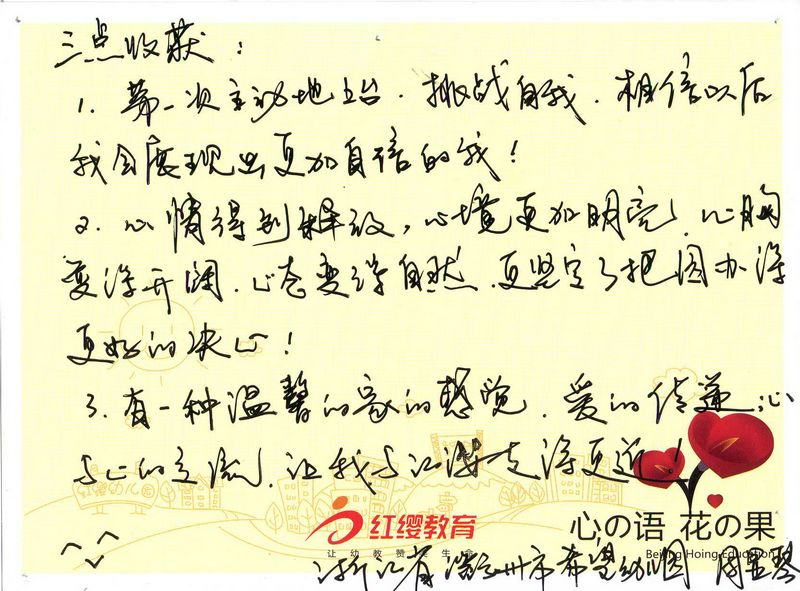 三点收获：
1. 第一次主动地上台．挑战自我．相信以后
我会展现出更加自信的我！
2. 心情得到释放，心境更加明亮，心胸
变得开阔．心态变得自然．更坚定了把园办得
更好的决心！
3. 有一种温馨的家的感觉．爱的传递，心
与心的交流，让我与红缨走得更近！
红缨幼儿园
红缨教育
让幼教赞美生命
心の语 花の果
Beijing Hoing Education
浙江省 州市希望幼儿园 周 琴